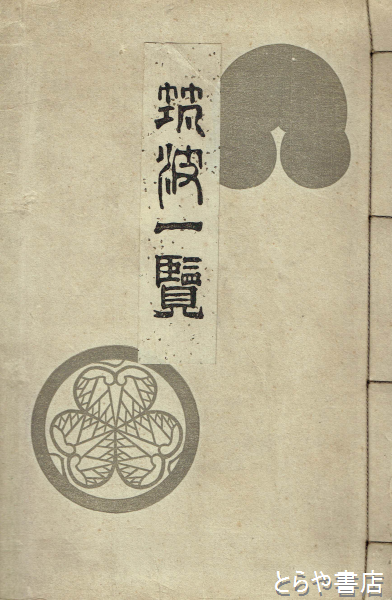 筑波一覧
とらや書店